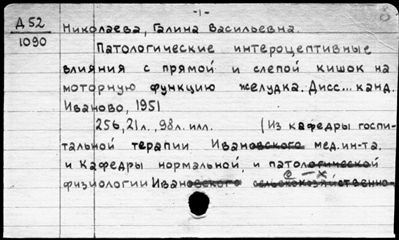 -1-
Д 52
1090
Николаева, Галина Васильевна.
Патологические интероцептивные
влияния с прямой и слепой кишок на
моторную функцию желудка. Дисс... канд.
Иваново, 1951
256,21л., 98л. илл. (Из кафедры госпи-
тальной терапии Ивановского мед.ин-та.
и Кафедры нормальной и патологической
с-х.
физиологии Ивановского сельскохозяйственно-